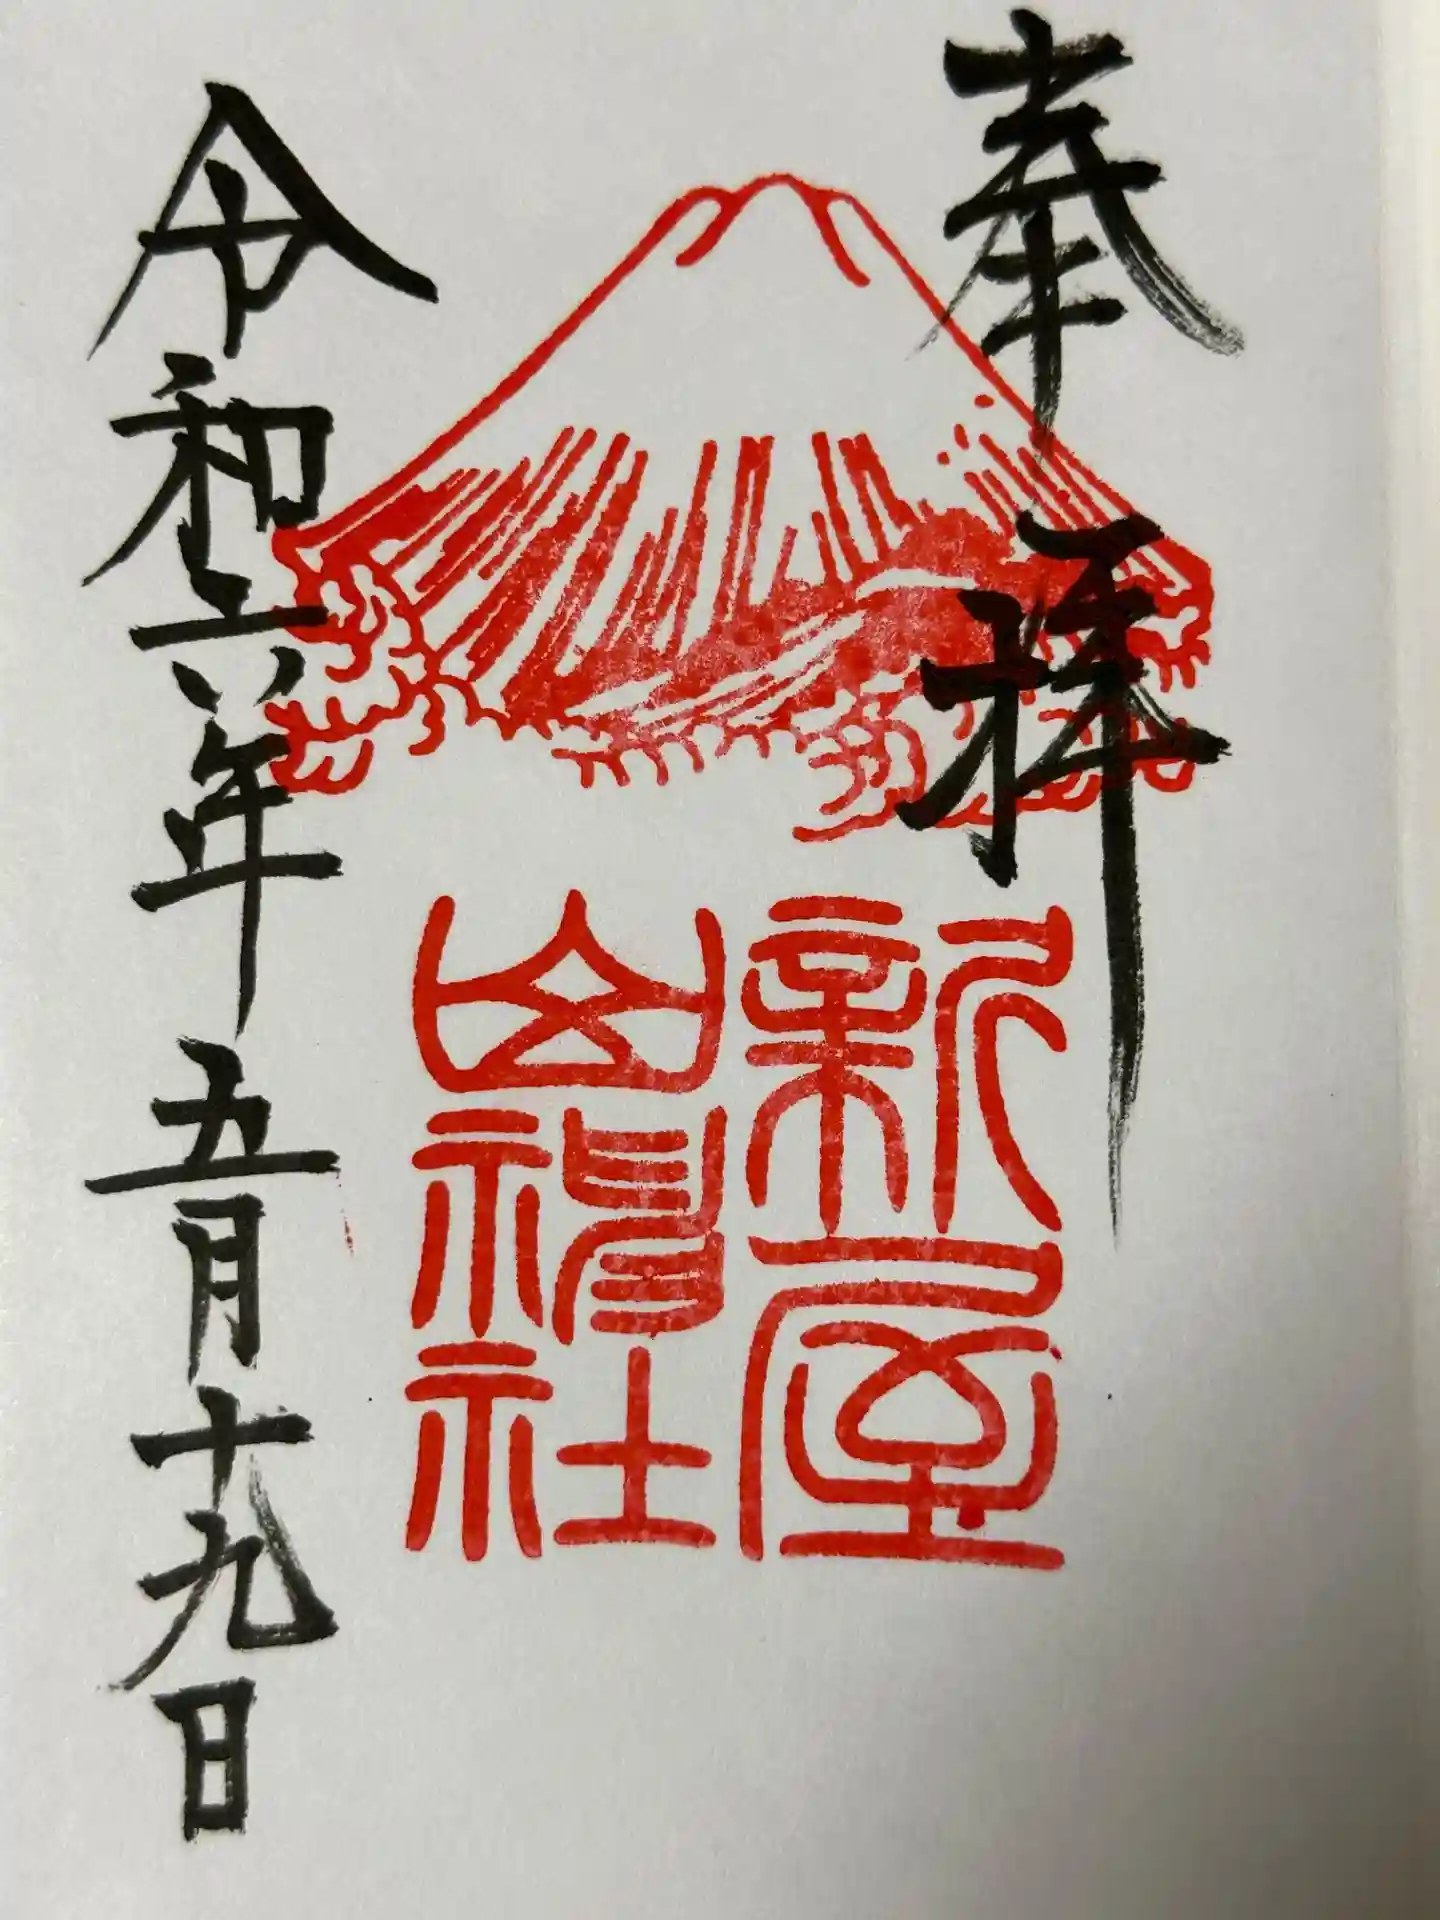 奉拝
新屋
山神社
令和六年五月十九日